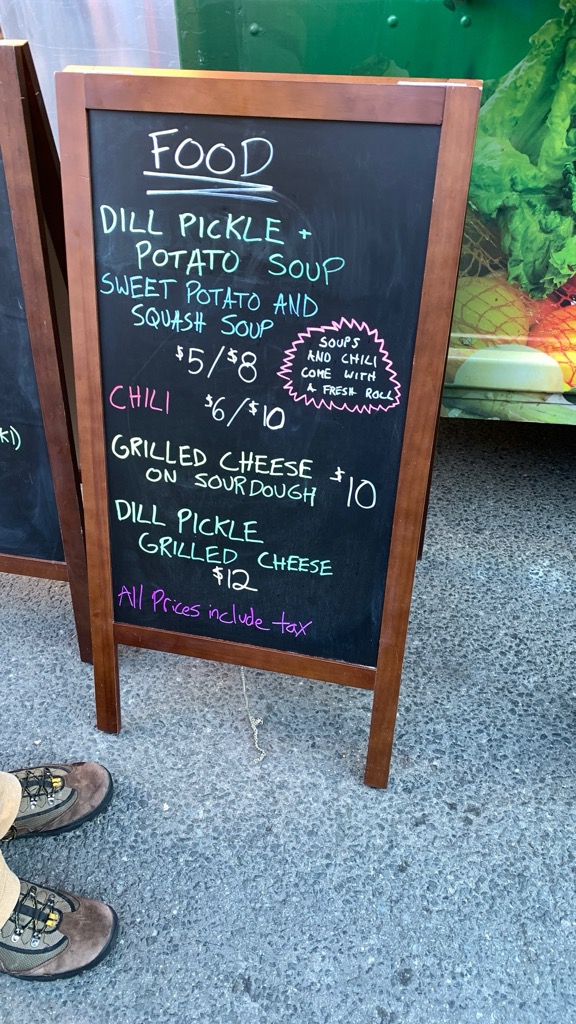 FOOD
DILL PICKLE +
POTATO SOUP
SWEET POTATO AND
SQUASH SOUP
$5/$8
SOUPS
AND CHILI
COME WITH
A FRESH ROLL
CHILI $6/$10
GRILLED CHEESE
ON SOURDOUGH $10
DILL PICKLE
GRILLED CHEESE
$12
All Prices include tax